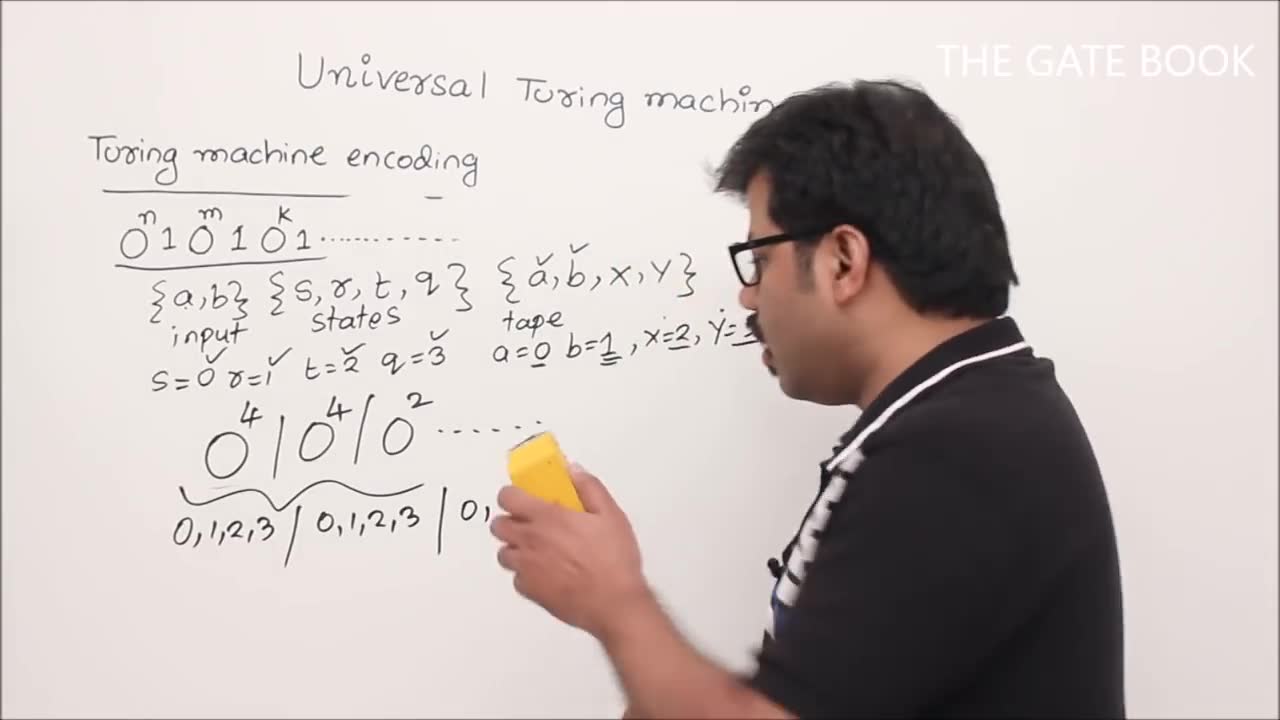 THE GATE BOOK
Universal Turing machin
Turing machine encoding
0^n 1 0^m 1 0^k 1 ............
{a,b} {s, r, t, q} {a, b, x, y}
input states tape
s=0 r=1 t=2 q=3 a=0 b=1, x=2, y=
0^4 | 0^4 | 0^2 .......
0,1,2,3 | 0,1,2,3 | 0,